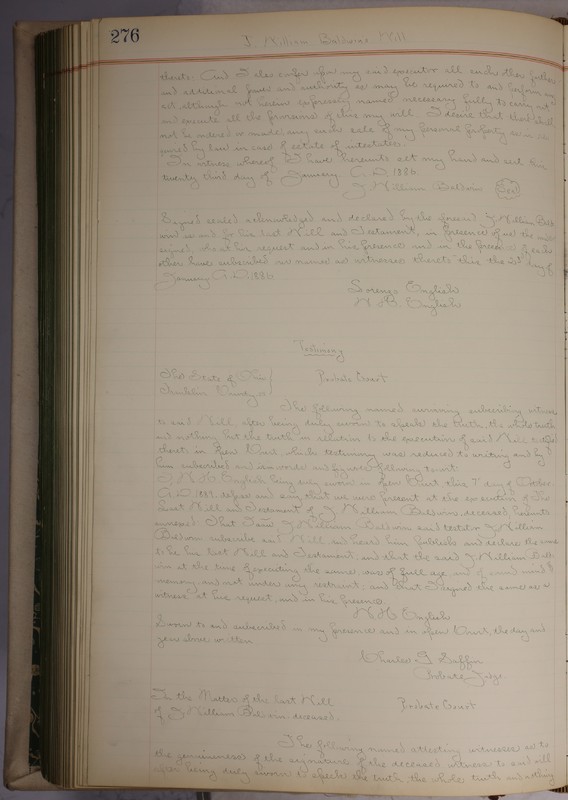 276
J. William Baldwins Will
thereto. And I also confer upon my said executor all such other further
and additional power and authority as may be required to and
although not herein expressly named necessary fully to carry out
and execute all the provisions of this my will. I desire that
not be ordered or made, any such sale of my personal property as is re
quired by law in case of estate of intestates.
In witness whereof I have hereunto set my hand and seal this
twenty third day of January A.D. 1886
J. William Baldwin Seal
Signed sealed acknowledged and declared by the aforesaid J. William Bald
win as and for his last Will and Testament, in presence of us the under
signed, who at his request and in his presence and in the presence of each
other have subscribed our names as witnesses thereto this the 23d day of
January A.D. 1886
Lorenzo English
W. H. English
Testimony
The State of Ohio
Franklin County ss
Probate Court
The following named surviving subscribing witness
to said Will, after being duly sworn to speak the truth, the whole truth
and nothing but the truth in relation to the execution of said Will testified
thereto in Open Court which testimony was reduced to writing and by
him subscribed and is in words and figures following to wit:
I W. H. English being duly sworn in Open Court this 7" day of October
A.D. 188 depose and say, that we were present at the execution of the
Last Will and Testament of J. William Baldwin, deceased, hereunto
annexed. That I saw J. William Baldwin said testator J. William
Baldwin subscribe said Will and heard him publish and declare the same
to be his last Will and Testament, and that the said J. William Bald
win at the time of executing the same, was of full age, and of sound mind &
memory, and not under any restraint; and that I signed the same as a
witness at his request, and in his presence.
W. H. English
Sworn to and subscribed in my presence and in open Court, the day and
year above written
Charles G. Saffin
Probate Judge
In the Matter of the last Will
of J. William Baldwin deceased.
Probate Court
The following named attesting witnesses as to
the genuineness of the signature of the deceased witness to said will
upon being duly sworn to speak the truth, the whole truth and nothing